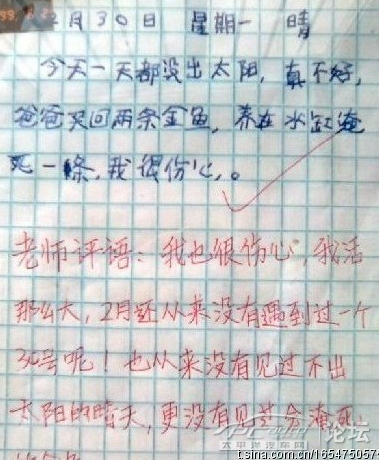 2月30日 星期一 晴
今天一天都没出太阳，真不好，
爸爸买回两条金鱼，养在水缸淹
死一條，我很伤心。
老师评语：我也很伤心，我活
那么大，2月还从来没有遇到过一个
30号呢！也从来没有见过不出
太阳的晴天，更没有见过会淹死
论坛
太平洋汽车网
t.sina.com.cn/165475057